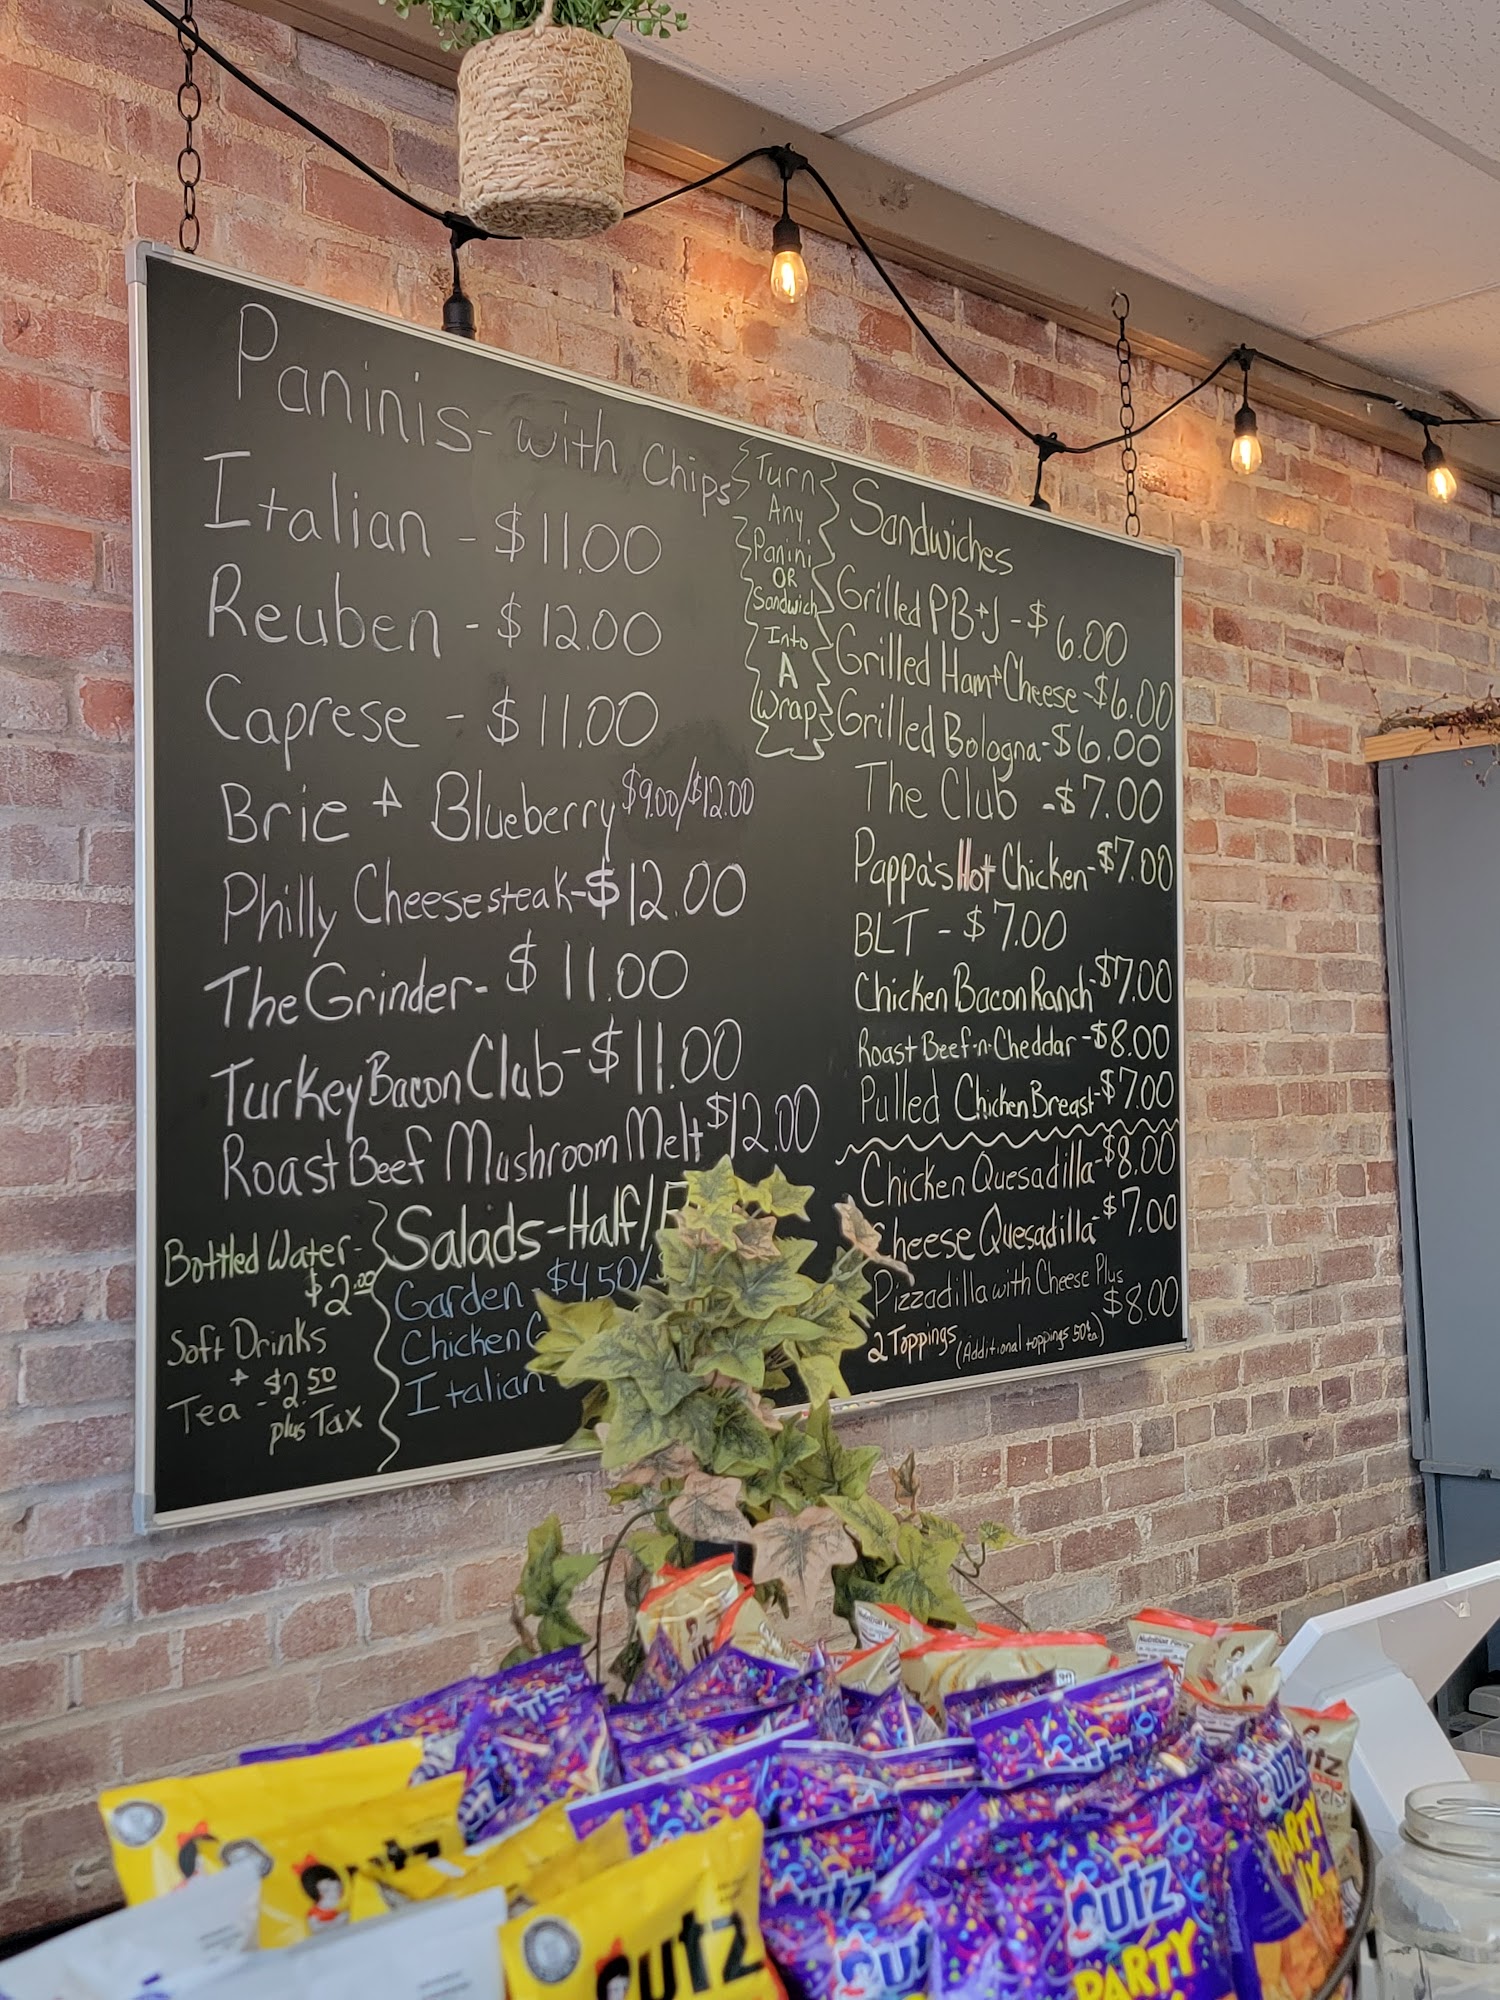 Paninis - with chips
Italian - $11.00
Reuben - $12.00
Caprese - $11.00
Brie + Blueberry $9.00/$12.00
Philly Cheesesteak - $12.00
The Grinder - $11.00
Turkey Bacon Club - $11.00
Roast Beef Mushroom Melt $12.00
Turn
Any
Panini
OR
Sandwich
Into
A
Wrap
Sandwiches
Grilled PB+J - $6.00
Grilled Ham+Cheese - $6.00
Grilled Bologna - $6.00
The Club - $7.00
Pappa's Hot Chicken - $7.00
BLT - $7.00
Chicken Bacon Ranch - $7.00
Roast Beef-n-Cheddar - $8.00
Pulled Chicken Breast - $7.00
Chicken Quesadilla - $8.00
Cheese Quesadilla - $7.00
Pizzadilla with Cheese Plus
2 Toppings (Additional toppings 50¢ ea) $8.00
Bottled Water -
$2.00
Soft Drinks
+
Tea - $2.50
plus Tax
Salads - Half/
Garden $4.50/
Chicken
Italian
utz
utz
utz
PARTY
utz
PARTY